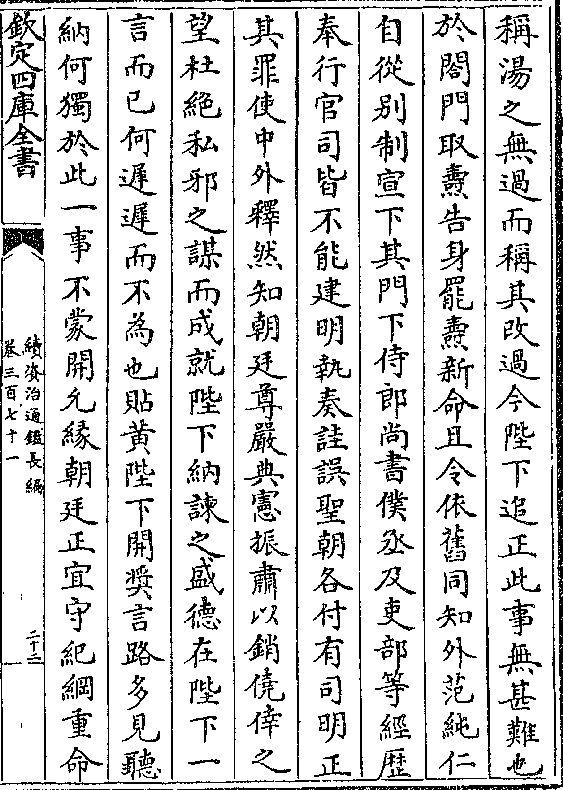 稱湯之無過而稱其改過今陛下追正此事無甚難也
於閤門取燾告身罷燾新命且令依舊同知外范純仁
自從别制宣下其門下侍郎尚書僕丞及吏部等經歴
奉行官司皆不能建明執奏詿誤聖朝各付有司明正
其罪使中外釋然知朝廷尊嚴典憲振肅以銷僥倖之
望杜絶私邪之謀而成就陛下納諫之盛德在陛下一
言而已何遲遲而不為也貼黄陛下開奬言路多見聽
納何獨於此一事不蒙開允縁朝廷正宜守紀綱重命
欽定四庫全書
續資治通鑑長編
卷三百七十一
二十三